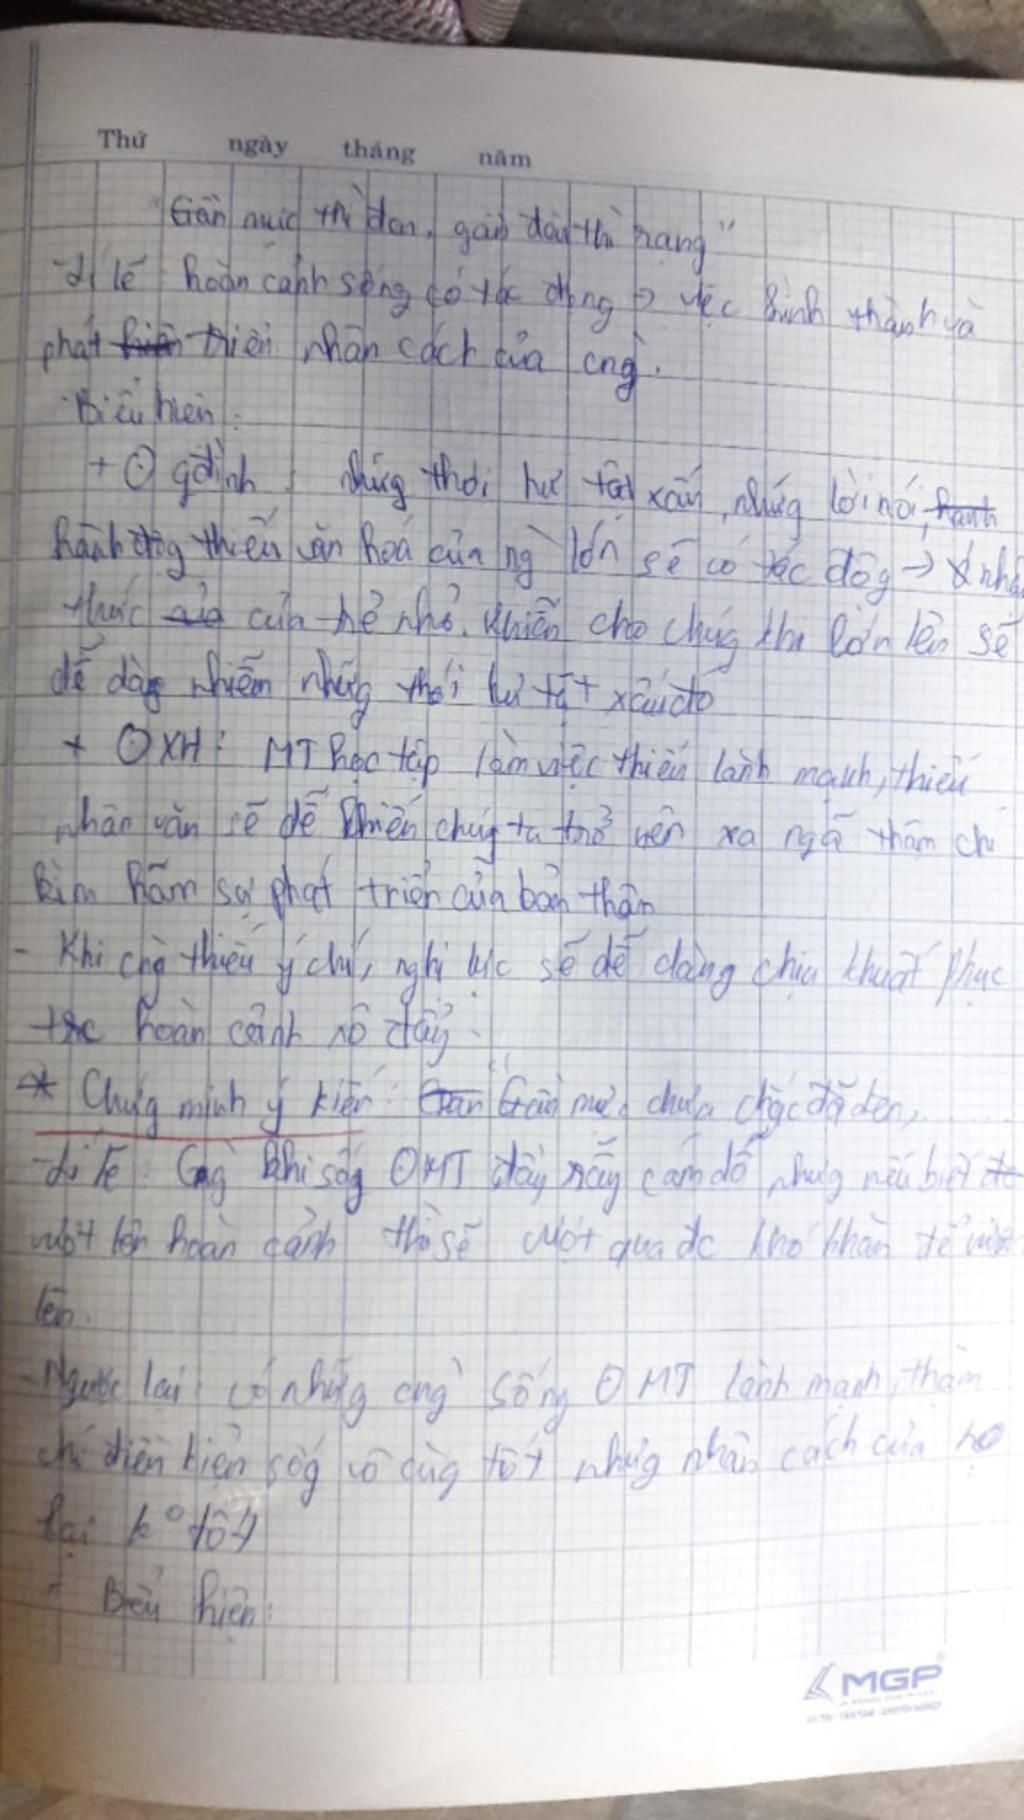 Thứ ngày tháng năm
"Gần mực thì đen, gần đèn thì rạng"
- Lí lẽ: hoàn cảnh sống có tác động → việc hình thành và
phát triển nhân cách của cng`.
Biểu hiện:
+ gđình: những thói hư tật xấu, những lời nói,
hành động thiếu văn hoá của ng` lớn sẽ có tác động →
thức của trẻ nhỏ. Khiến cho chúng khi lớn lên sẽ
dễ dàng nhiễm những thói hư tật xấu đó
+ XH: MT học tập làm việc thiếu lành mạnh, thiếu
nhân văn sẽ dễ khiến chúng ta trở nên xa ngã thậm chí
kìm hãm sự phát triển của bản thân
- Khi cng` thiếu ý chí, nghị lực sẽ dễ dàng chịu khuất phục
trc hoàn cảnh xô đẩy.
* Chứng minh ý kiến: Gần mực chưa chắc đã đen,
- Lí lẽ: Cng` khi sống MT đầy rẫy cám dỗ nhưng nếu biết
vượt lên hoàn cảnh thì sẽ vượt qua đc khó khăn để
lên.
- Ngược lại: có những cng` sống MT lành mạnh, thậm
chí điều kiện sống vô cùng tốt nhưng nhân cách của họ
lại k° tốt
+ Biểu hiện:
MGP